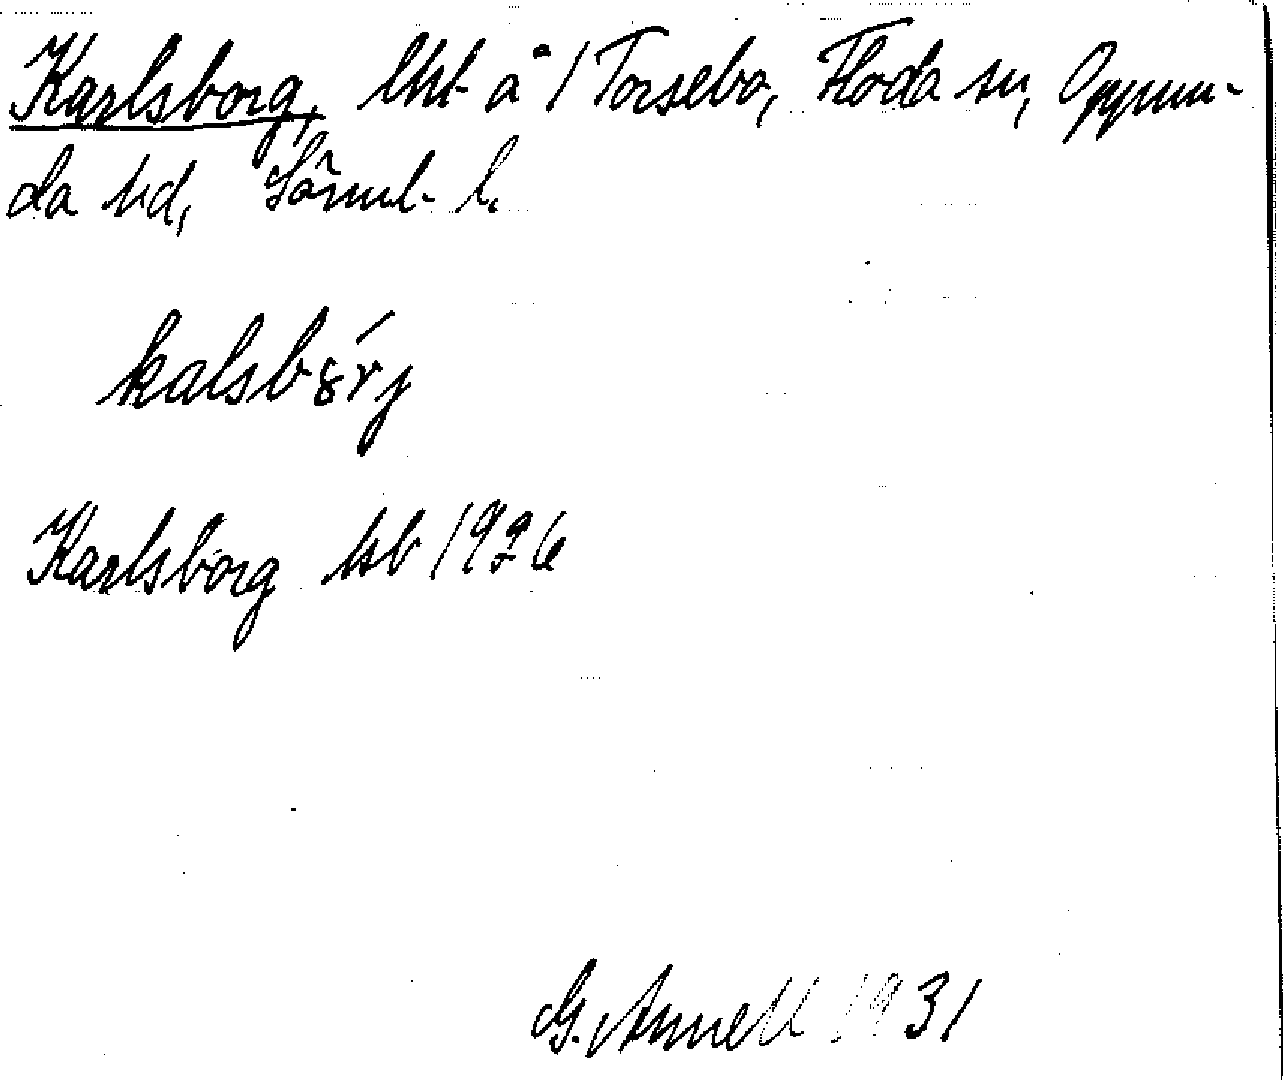 Karlsborg, lht å 1 Torsebo, Floda sn, Oppun-
da hd, Sörml. l.
kalsbȣ́rj
Karlsborg hsb 1926
G. Annell 1931